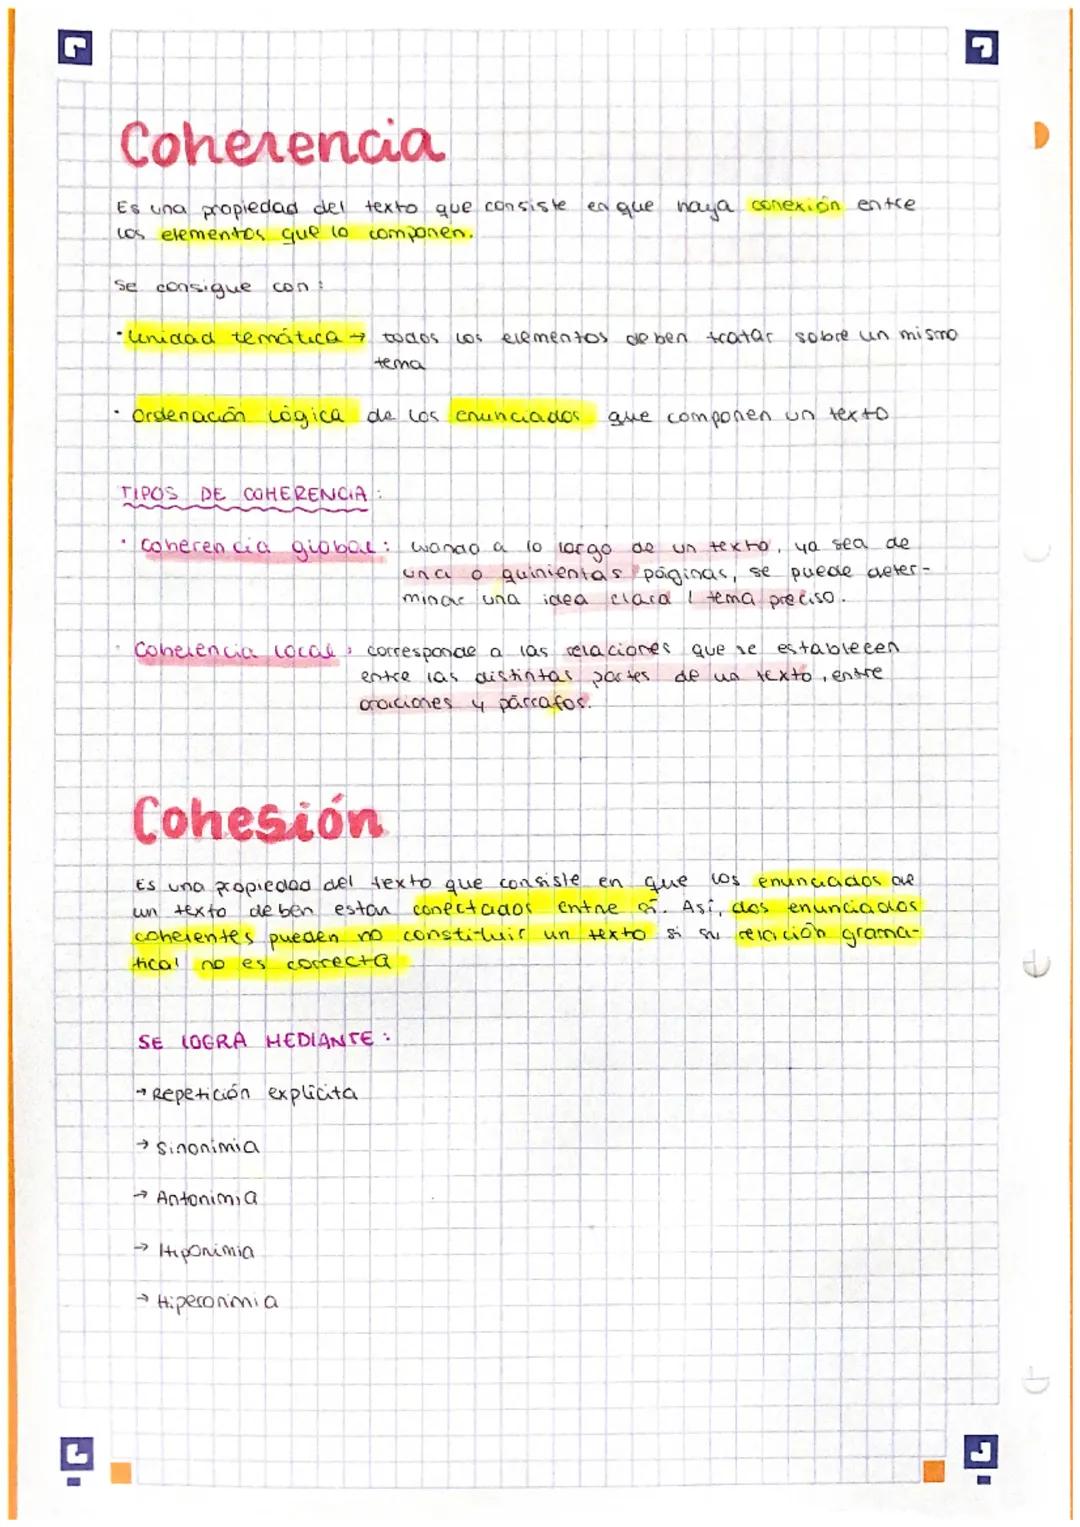 Coherencia
Es una propiedad del texto que consiste en que haya conexión entre
los elementos que lo componen.
Se consigue con:
· Unidad temática → todos los elementos deben tratar sobre un mismo
tema
· Ordenación lógica de los enunciados que componen un texto
TIPOS DE COHERENCIA:
· Coherencia global: cuando a lo largo de un texto, ya sea de
una o quinientas páginas, se puede deter-
minar una idea clara / tema preciso.
· Coherencia local: corresponde a las relaciones que se establecen
entre las distintas partes de un texto, entre
oraciones y párrafos.
Cohesión
Es una propiedad del texto que consiste en que los enunciados de
un texto deben estar conectados entre sí. Así, dos enunciados
coherentes pueden no constituir un texto si su relación grama-
tical no es correcta
SE LOGRA MEDIANTE:
→ Repetición explícita
→ Sinonimia
→ Antonimia
→ Hiponimia
→ Hiperonimia